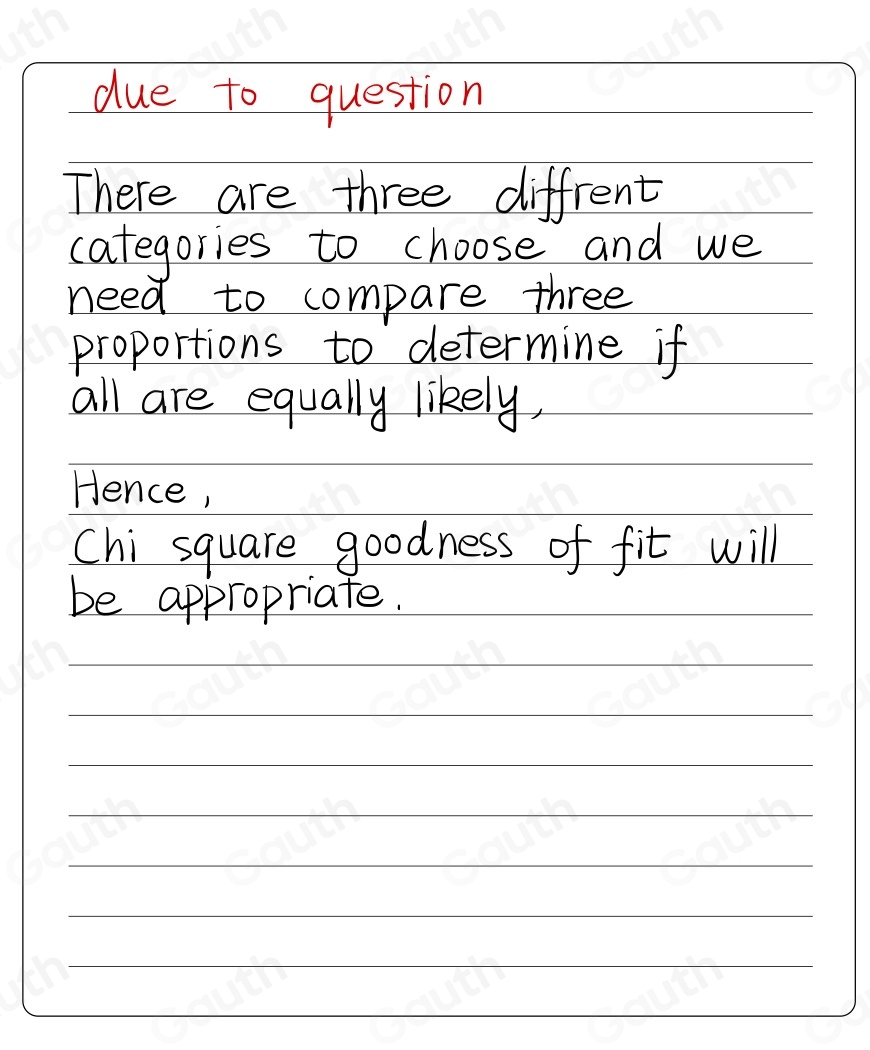 due to question
There are three diffrent
categories to choose and we
need to compare three
proportions to determine if
all are equally likely,
Hence,
Chi square goodness of fit will
be appropriate.